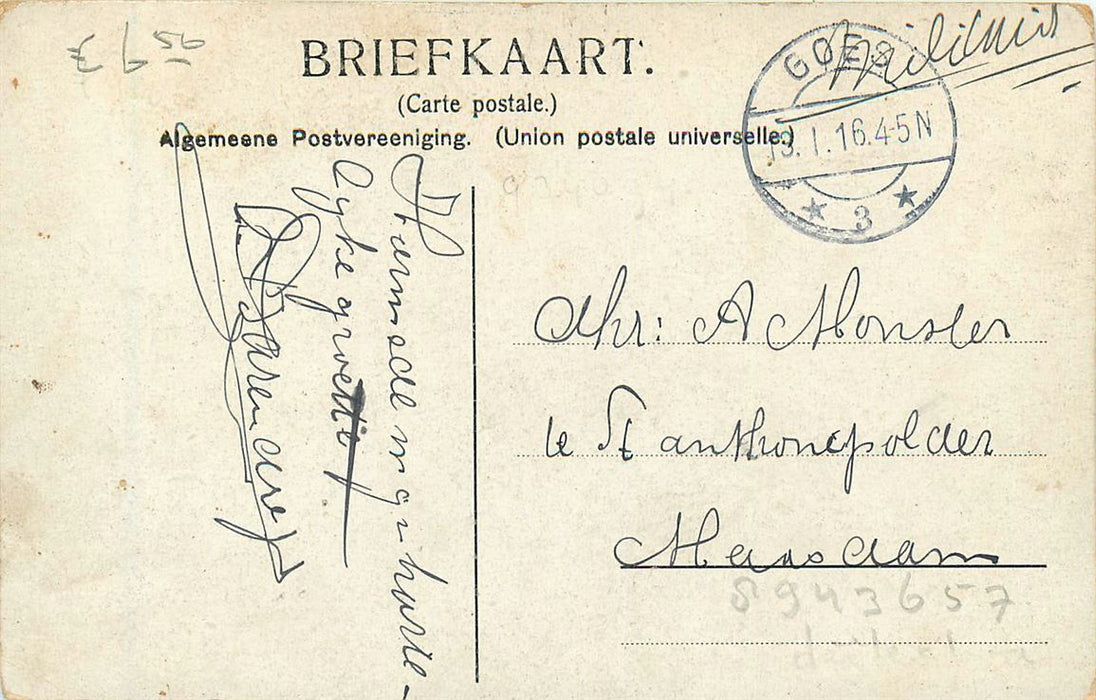 £ 6 95
BRIEFKAART.
(Carte postale.)
Algemeene Postvereeniging. (Union postale universelle.)
GOES
13.1.16.4-5N
3
Militair
mijn harte-
lyke groeten
Mhr: A Monster
te St anthonepolder
Maasdam
8943657